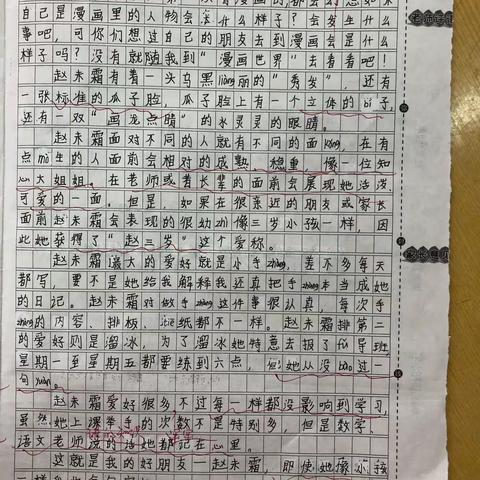 自己是漫画里的人物会是什么样子？会发生什么
事吧，可你们想过自己的朋友去到漫画会是什么
样子吗？没有就随我到“漫画世界”去看看吧！
赵未霜有着一头乌黑liàng丽的“秀发”，还有
一张标准的瓜子脸，瓜子脸上有一个立体的bí子，
还有一双“画龙点睛”的水灵灵的眼睛。
赵未霜面对不同的人就有不同的面kǒng，在有
点mò生的人面前会相对的成熟、稳重，像一位知
心大姐姐。在老师或者长辈的面前会展现她活泼、
可爱的一面。但是，如果在很亲近的朋友或家长
面前赵未霜会表现的很幼zhì像三岁小孩一样，因
此她获得了“赵三岁”这个爱称。
赵未霜最大的爱好就是小手zhàng，差不多每天
都写，要不是她给我解释我还真把手zhàng本当成她
的日记。赵未霜对做手zhàng这件事很认真，每次手
zhàng的内容、排板、纸都不一样。赵未霜排第二
的爱好则是溜冰，为了溜冰她特意去报了fǔ导班，
星期一至星期五都要练到六点，但她从没bào过一
句yuàn。
赵未霜爱好很多，不过每一样都没影响到学习，
虽然她上课举手的次数不是特别多，但是数学、
语文老师说的话她都记在心里。
这就是我的好朋友—赵未霜，即使她像小孩